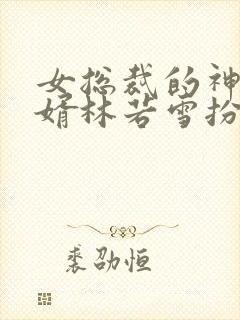 女总裁的神
婿林若雪扮
裘劭恒